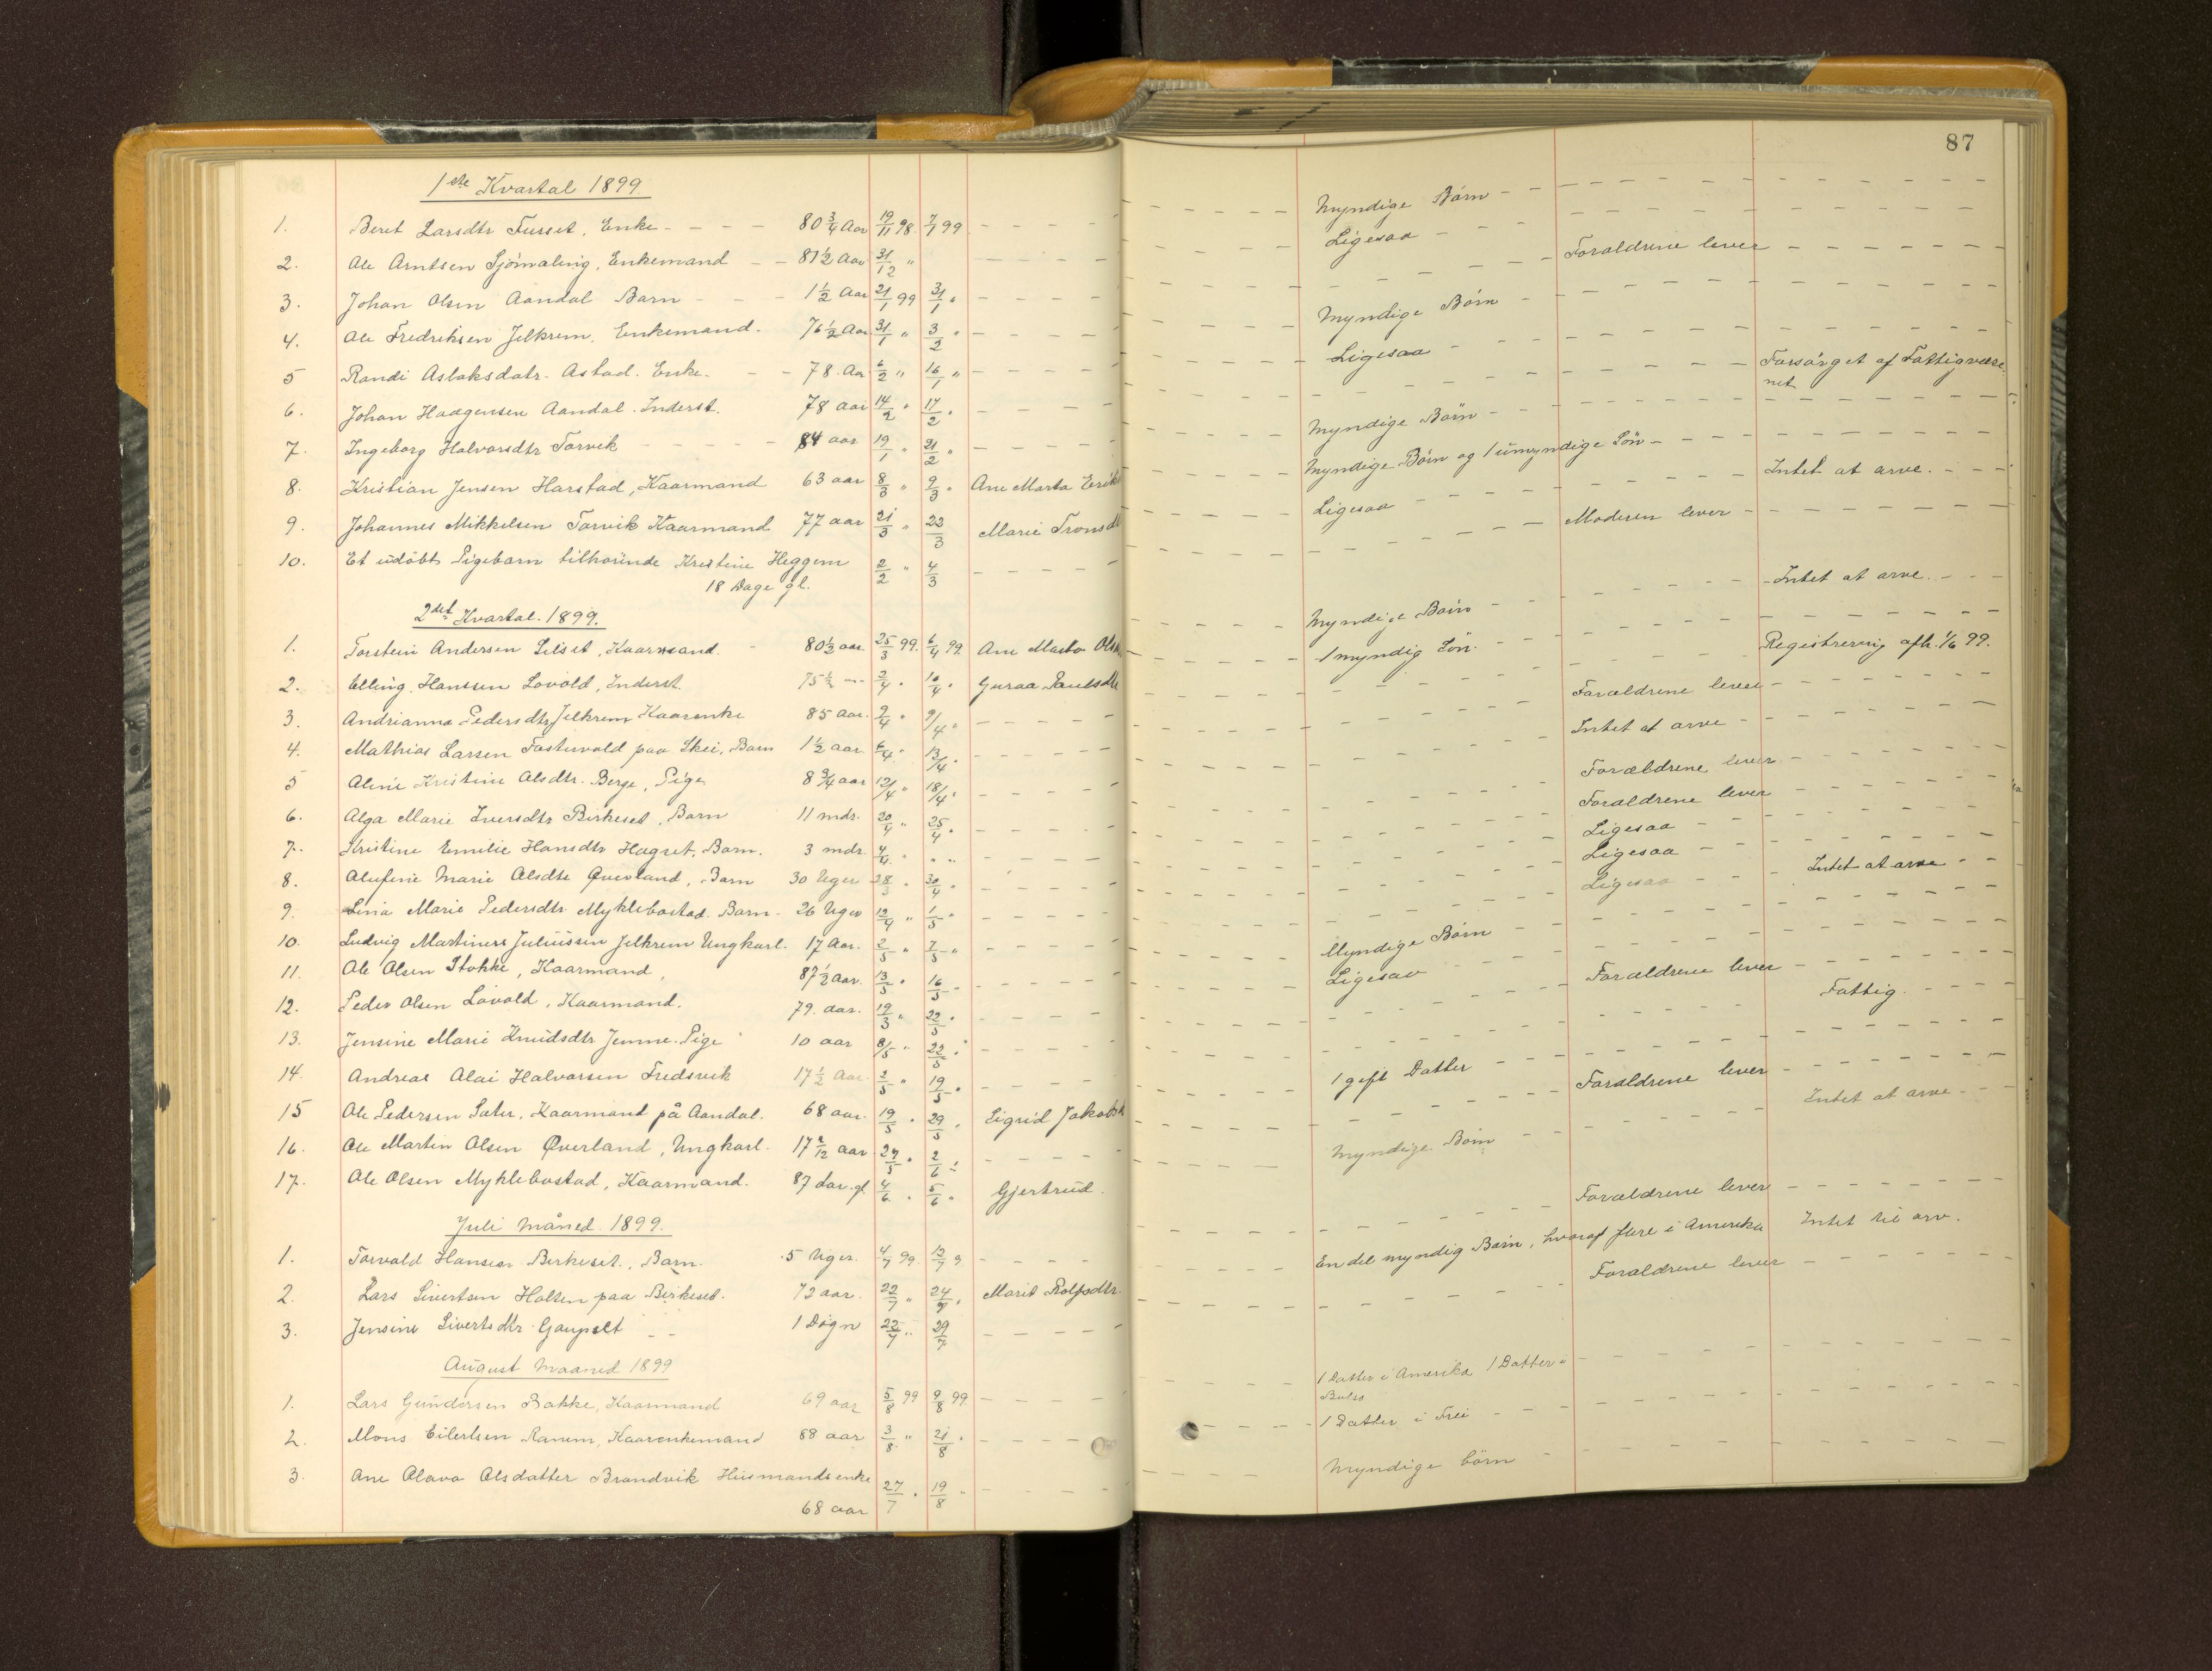 87
1ste Kvartal 1899
1. Beret Larsdtr Fusset, Enke - - - - 80 3/4 Aar 19/11 98 7/1 99 - - - - Myndige Börn - - - -
2. Ole Arntsen Sjömæling, Enkemand - - 81 1/2 Aar 31/12 " - - - - Ligesaa - - - -
3. Johan Olsen Aandal Barn - - - 1 1/2 Aar 21/1 99 31/1 " - - - - Forældrene lever - - - -
4. Ole Fredriksen Jelkrem, Enkemand. 76 1/2 Aar 31/1 " 3/2 " - - - - Myndige Börn - - - -
5 Randi Aslaksdatr. Astad. Enke. - - 78. Aar 6/2 " 16/1 " - - - - Ligesaa - - - -
6. Johan Haagensen Aandal. Inderst. 78 aar 14/2 " 17/2 " - - - - Forsörget af Fattigvæse-
net
7. Ingeborg Halvorsdtr Torvik - - - - 84 aar 19/1 " 21/2 " - - - - Myndige Börn - - - -
8. Kristian Jensen Harstad, Kaarmand 63 aar 8/3 " 9/3 " Ane Marta Erik Myndige Börn og 1 umyndige Sön - - - -
9. Johannes Mikkelsen Torvik Kaarmand 77 aar 21/3 " 22/3 Marie Tronsd Ligesaa - - - - Intet at arve. - - -
10. Et udöbt Pigebarn tilhörende Kristine Heggem 2/2 " 4/3 - - - - Moderen lever - - - -
18 Dage gl.
2det Kvartal. 1899.
1. Torstein Andersen Silset, Kaarmand. - 80 1/2 aar. 25/3 99. 6/4 99. Ane Marta Ols Myndige Börn - - - - Intet at arve. - - -
2. Elling Hansen Lovold, Inderst. 75 1/2 - 2/4 " 10/4 " Guraa Paulsd 1 myndig Sön. - - - -
3. Andrianna Pedersdtr Jelkrem Kaarenke 85 aar. 9/4 " 9/4 " - - - - Registrering afh. 1/6 99.
4. Mathias Larsen Fostervold paa Skei, Barn 1 1/2 aar 6/4 " 13/4 " - - - - Forældrene lever - - - -
5 Aline Kristine Olsdtr. Berge, Pige 8 3/4 aar 12/4 " 18/4 " - - - - Intet at arve - - - -
6. Alga Marie Iversdtr Birkeset, Barn 11 mdr. 20/4 " 25/4 " - - - - Forældrene lever - - - -
7. Kristine Emilie Hansdtr Hagset, Barn. 3 mdr. 4/4 " " " - - - - Forældrene lever - - - -
8. Olufine Marie Olsdtr Qverland, Barn 30 Uger 28/3 " 30/4 " - - - - Ligesaa - - - -
9. Lina Marie Pedersdtr Myklebostad. Barn - 26 Uger 12/4 " 1/5 " - - - - Ligesaa - - - -
10. Ludvig Martinus Juliussen Jelkrem Ungkarl. 17 Aar. 2/5 " 7/5 " - - - - Ligesaa - - Intet at arve - -
11. Ole Olsen Stokke, Kaarmand, 87 1/2 aar. 13/5 " 16/5 - - - - Myndige Börn - - - -
12. Peder Olsen Lovold, Kaarmand. 79. aar. 19/3 " 22/5 " - - - - Ligesaa - - - -
13. Jensine Marie Knudsdtr Jemne. Pige 10 aar 8/5 " 22/5 " - - - - Forældrene lever - - - -
14. Andreas Olai Halvorsen Fredsvik 17 1/2 Aar. 2/5 " 19/5 " - - - - Fattig. - - - -
15 Ole Pedersen Sæter, Kaarmand på Aandal. 68 aar. 19/5 " 29/5 " Sigrid Jakobs 1 gift Datter - - - -
16. Ole Martin Olsen Qverland, Ungkarl. 17 2/12 aar. 27/5 " 2/6 " - - - - Forældrene lever - - - -
17. Ole Olsen Myklebostad, Kaarmand. 87 aar. gl. 4/6 " 5/6 " Gjertrud. Myndige Börn - - Intet at arve - -
Juli Måned 1899.
1. Torvald Hansen Birkeset, Barn. 5 Uger. 4/7 99 12/7 9. - - - - Forældrene lever - - - -
2. Lars Sivertsen Holten paa Birkeset. 72 aar. 22/7 " 24/7 " Marit Rolfsdtr. En del myndig Börn, hvoraf flere i Amerika Intet til arv.
3. Jensine Sivertsdtr Gaupset - - 1 Døgn 22/7 " 29/7 - - - - Forældrene lever - - - -
August Maaned 1899
1. Lars Gundersen Bakke, Kaarmand 69 aar 5/8 99 9/8 99 - - - - 1 Datter i Amerika 1 Datter i
2. Mons Eilertsen Ranem, Kaarenkemand 88 aar 3/8 " 21/8 " - - - - 1 Datter i Frei - - - -
3. Ane Olava Olsdatter Brandvik Husmandsenke 27/7 " 19/8 " - - - - Myndige börn - - - -
68 aar